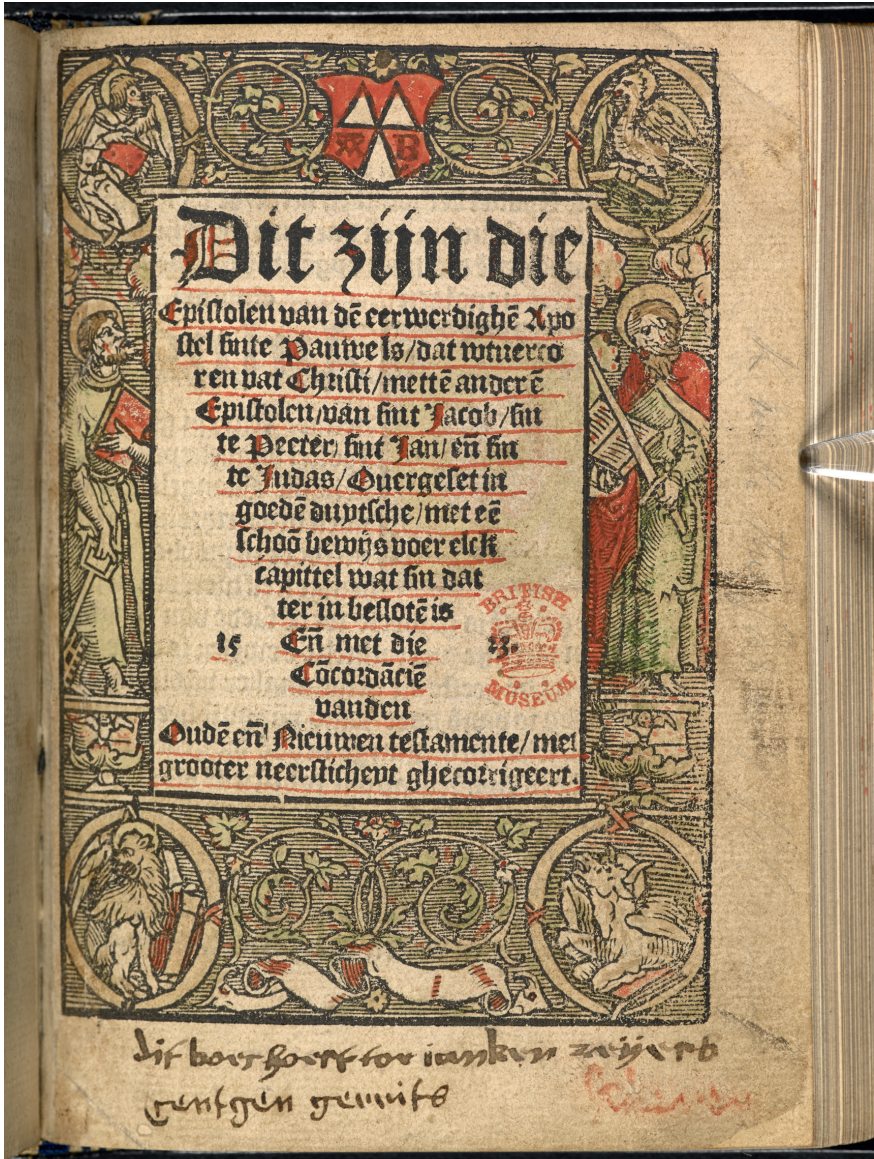 B
Dit zijn die
Epistolen van dē eerwerdighē Apo
stel sinte Pauwels/dat wtuerco
ren vat Christi/mettē anderē
Epistolen/van sint Jacob/sin
te Peeter/sint Jan/eñ sin
te Judas/Ouergeset in
goedē duytsche/met eē
schoō bewijs voer elck
capittel wat sin dat
ter in beslotē is
15 Eñ met die 23.
Cōcordāciē
vanden
Oudē eñ Nieuwen testamente/met
grooter neerstichеyt ghecorrigeert.
BRITISH
MUSEUM
dit boec hoert toe